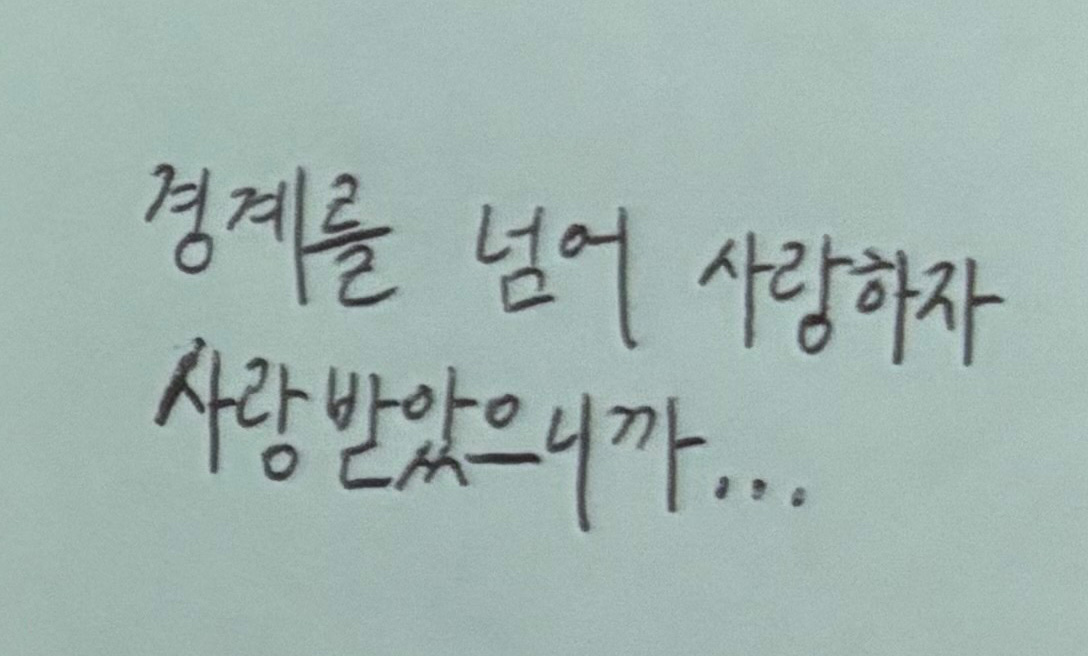 경계를 넘어 사랑하자
사랑받았으니까...